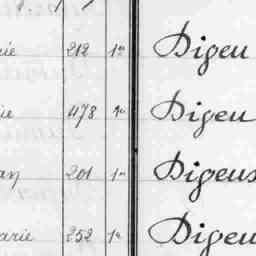 rie 212 1n Digeu
ie 478 1n Digeu
an 201 1n Digeus
arie 252 1n Digeu